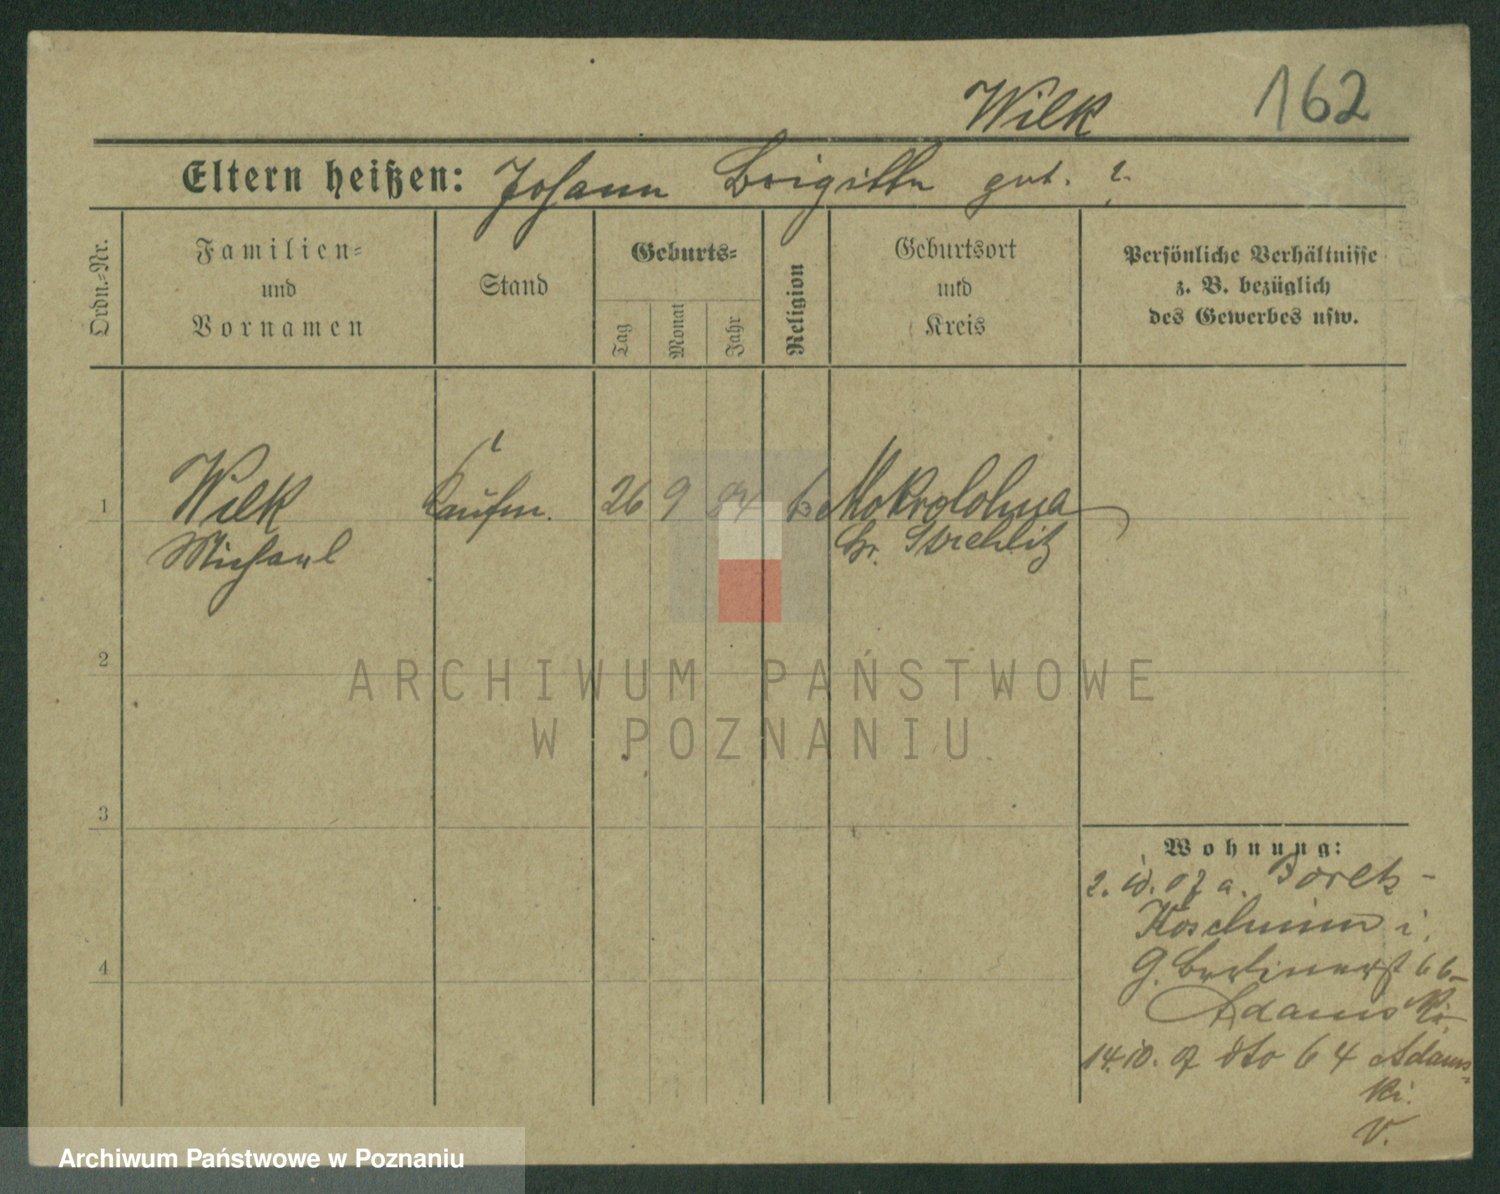 Wilk 162
Eltern heißen: Johann Brigitte geb. ?
Ordn.-Nr.
Familien-
und
Vornamen
Stand
Geburts-
Tag
Monat
Jahr
Religion
Geburtsort
und
Kreis
Persönliche Verhältnisse
z. B. bezüglich
des Gewerbes usw.
1 Wilk Kaufm. 26 9 84 k Mokrolohna
Michael Kr. Strehlitz
2
3
4
Wohnung:
2. 10. 07 a. Borek-
Koschmin i.
G. Berlinerst 66
Adamski
14. 10. 07 dto 64 Adams-
ki.
V.
ARCHIWUM PAŃSTWOWE
W POZNANIU
Archiwum Państwowe w Poznaniu